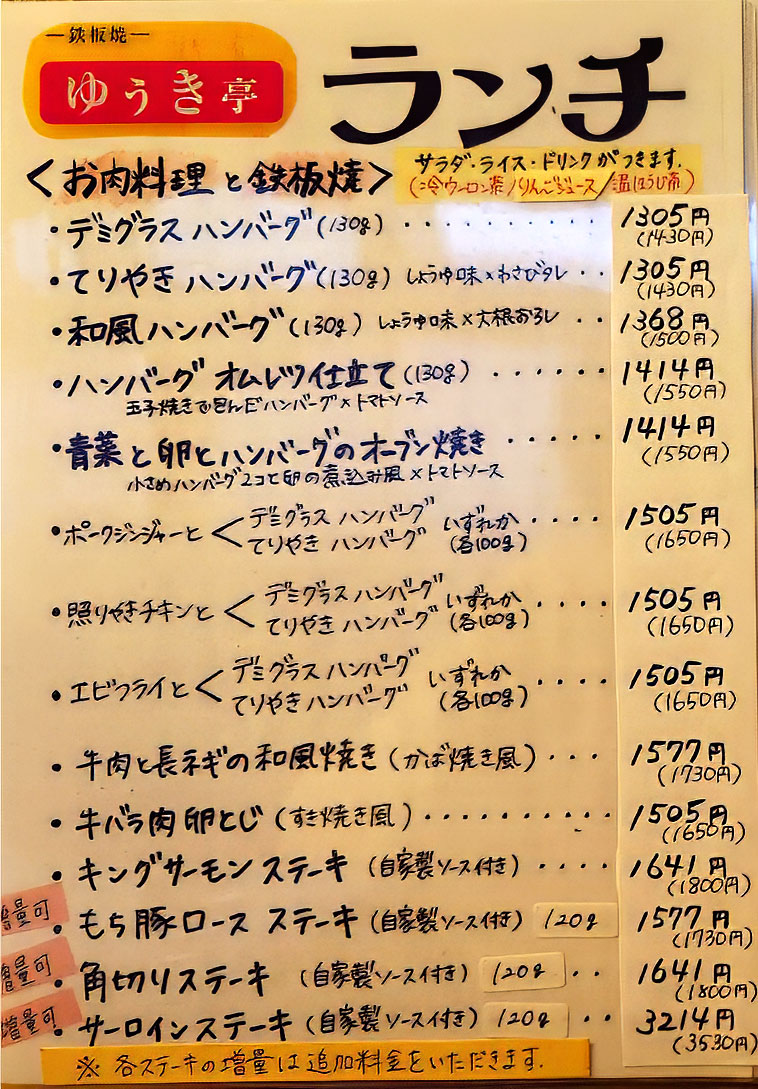 鉄板焼
ゆうき亭
ランチ
<お肉料理と鉄板焼>
サラダ・ライス・ドリンクがつきます.
(冷ウーロン茶/りんごジュース/温ほうじ茶)
・デミグラスハンバーグ(130g) ・・・・・・・・・・ 1305円
(1430円)
・てりやきハンバーグ(130g) しょうゆ味×わさびタレ ・・ 1305円
(1430円)
・和風ハンバーグ(130g) しょうゆ味×大根おろし ・・ 1368円
(1500円)
・ハンバーグ オムレツ仕立て(130g) ・・・・・・ 1414円
玉子焼きで包んだハンバーグ×トマトソース (1550円)
・青菜と卵とハンバーグのオーブン焼き ・・・・・ 1414円
小さめハンバーグ2コと卵の煮込み風×トマトソース (1550円)
・ポークジンジャーと< デミグラス ハンバーグ いずれか ・・・・ 1505円
てりやき ハンバーグ (各100g) (1650円)
・照りやきチキンと< デミグラス ハンバーグ いずれか ・・・・ 1505円
てりやき ハンバーグ (各100g) (1650円)
・エビフライと< デミグラス ハンバーグ いずれか ・・・・ 1505円
てりやきハンバーグ (各100g) (1650円)
・牛肉と長ネギの和風焼き(かば焼き風) ・・・ 1577円
(1730円)
・牛バラ肉卵とじ(すき焼き風) ・・・・・・・・・・ 1505円
(1650円)
・キングサーモンステーキ(自家製ソース付き) ・・・・ 1641円
(1800円)
増量可 ・もち豚ロース ステーキ(自家製ソース付き) 120g 1577円
(1730円)
増量可 ・角切りステーキ (自家製ソース付き) 120g ・・ 1641円
(1800円)
増量可 ・サーロインステーキ(自家製ソース付き) 120g ・・ 3214円
(3530円)
※ 各ステーキの増量は追加料金をいただきます.